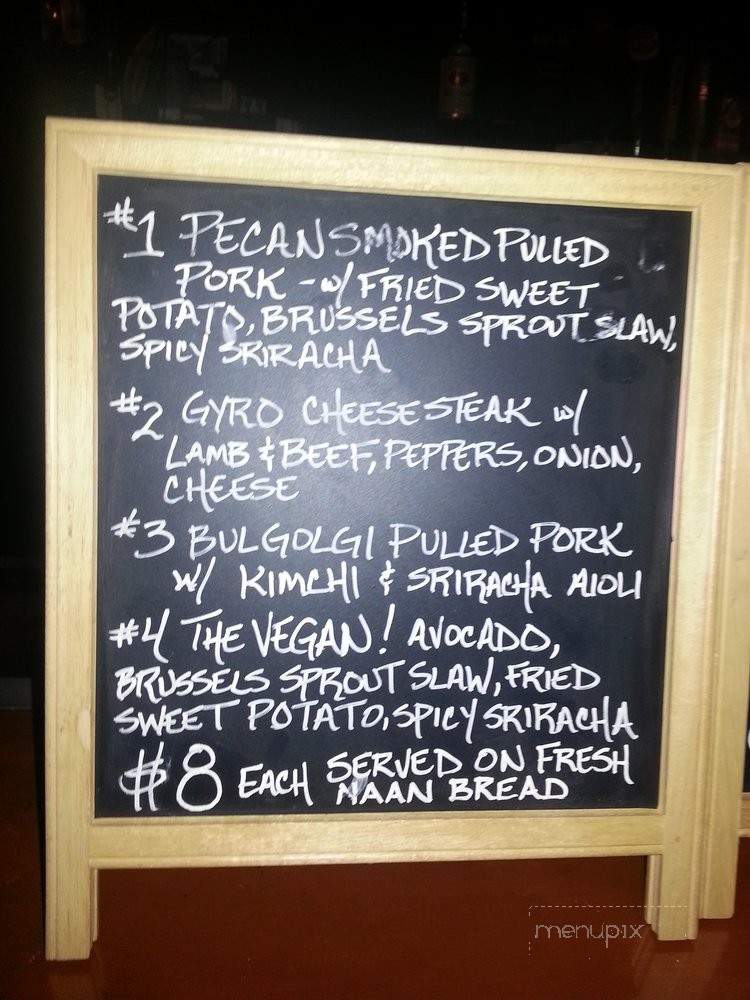 #1 PECAN SMOKED PULLED
PORK - w/ FRIED SWEET
POTATO, BRUSSELS SPROUT SLAW,
SPICY SRIRACHA
#2 GYRO CHEESESTEAK w/
LAMB & BEEF, PEPPERS, ONION,
CHEESE
#3 BULGOLGI PULLED PORK
W/ KIMCHI & SRIRACHA AIOLI
#4 THE VEGAN! AVOCADO,
BRUSSELS SPROUT SLAW, FRIED
SWEET POTATO, SPICY SRIRACHA
$8 EACH SERVED ON FRESH
NAAN BREAD
menupix